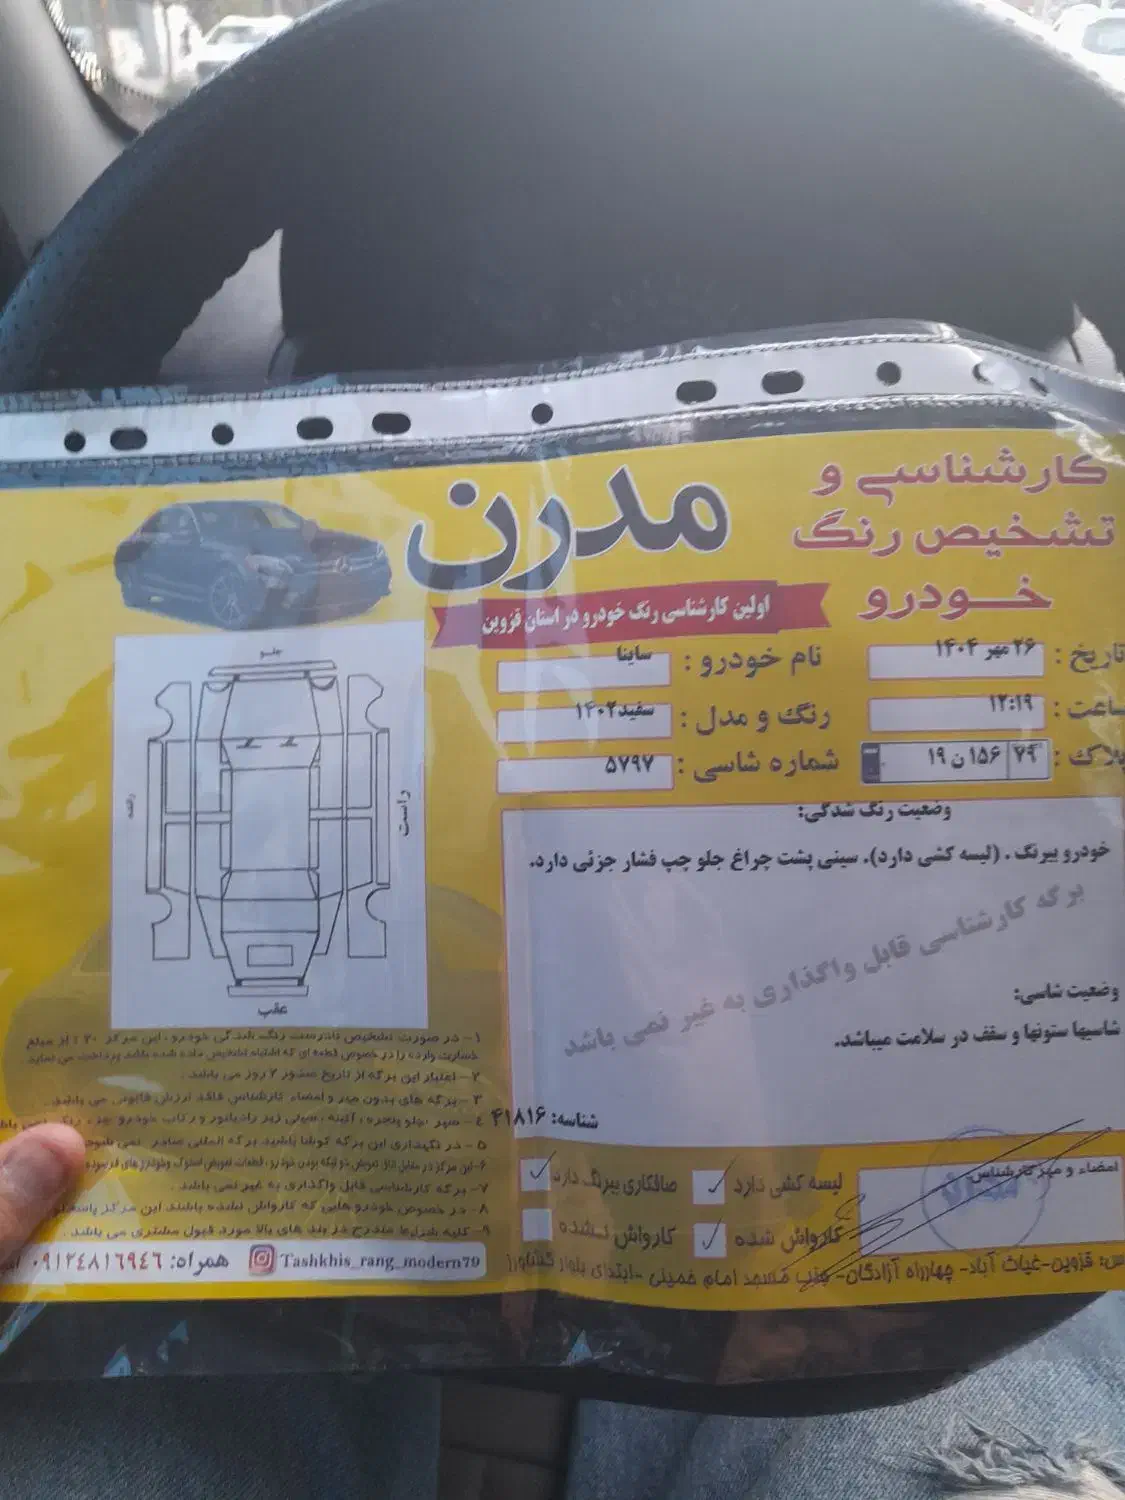 کارشناسی و
تشخیص رنگ
خودرو
مدرن
اولین کارشناسی رنگ خودرو در استان قزوین
تاریخ: ۲۶ مهر ۱۴۰۴
ساعت: ۱۲:۱۹
پلاک: ۷۹ ۱۵۶ ن ۱۹
نام خودرو: ساینا
رنگ و مدل: سفید ۱۴۰۲
شماره شاسی: ۵۷۹۷
وضعیت رنگ شدگی:
خودرو بیرنگ . (لیسه کشی دارد). سینی پشت چراغ جلو چپ فشار جزئی دارد.
برگه کارشناسی قابل واگذاری به غیر نمی باشد
وضعیت شاسی:
شاسیها ستونها و سقف در سلامت میباشد.
شناسه: ۴۱۸۱۶
لیسه کشی دارد
صافکاری بیرنگ دارد
کارواش شده
کارواش نشده
امضاء و مهر کارشناس
جلو
راست
عقب
۱- در صورت تشخیص نادرست رنگ شدگی خودرو ، این مرکز ۲۰ ٪ از مبلغ
خسارت وارده را در خصوص قطعه ای که اشتباه تشخیص داده شده باشد پرداخت می نماید
۲- اعتبار این برگه از تاریخ صدور ۲ روز می باشد .
۳- برگه های بدون مهر و امضاء کارشناس فاقد ارزش قانونی می باشد .
۴- سپر ،جلو پنجره ، آئینه ، سینی زیر رادیاتور و رکاب خودرو جزء رنگ نمی
۵- در نگهداری این برگه کوشا باشید برگه المثنی صادر نمی شود
۷- برگه کارشناسی قابل واگذاری به غیر نمی باشد .
۸- در خصوص خودرو هایی که کارواش نشده باشند این مرکز
۹- کلیه شرایط مندرج در بند های بالا مورد قبول مشتری می باشد .
Tashkhis_rang_modern79 همراه: ۰۹۱۲۴۸۱۶۹۴۶
س: قزوین-غیاث آباد- چهارراه آزادگان- جنب مسجد امام خمینی -ابتدای بلوار کشاورز